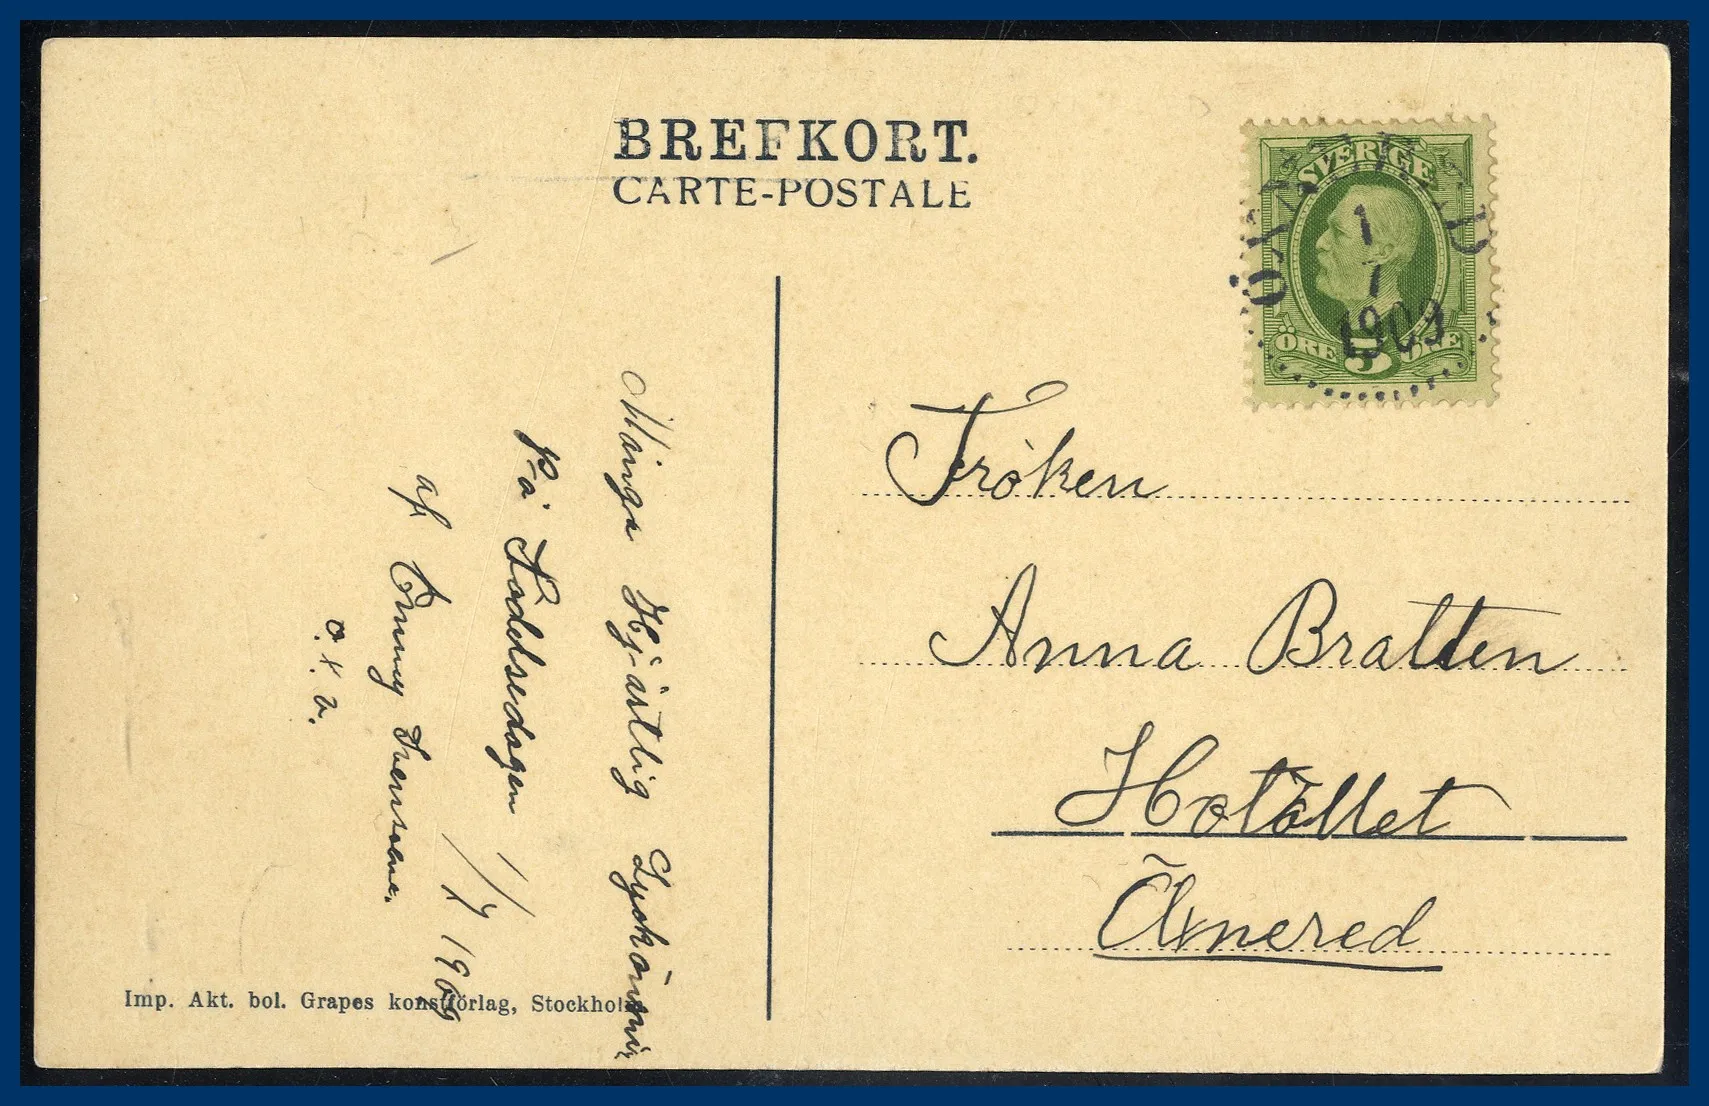 BREFKORT.
CARTE-POSTALE
SVERIGE
ÖXNERED
1
7
1909
ÖRE 5 ÖRE
Fröken
Anna Bratten
Hotället
Öxnered
Många Hjärtlig Lyckönsnir
På Födelsedagen 1/7 1909
af Emmy Svensson
o. x. v.
Imp. Akt. bol. Grapes konstförlag, Stockholm